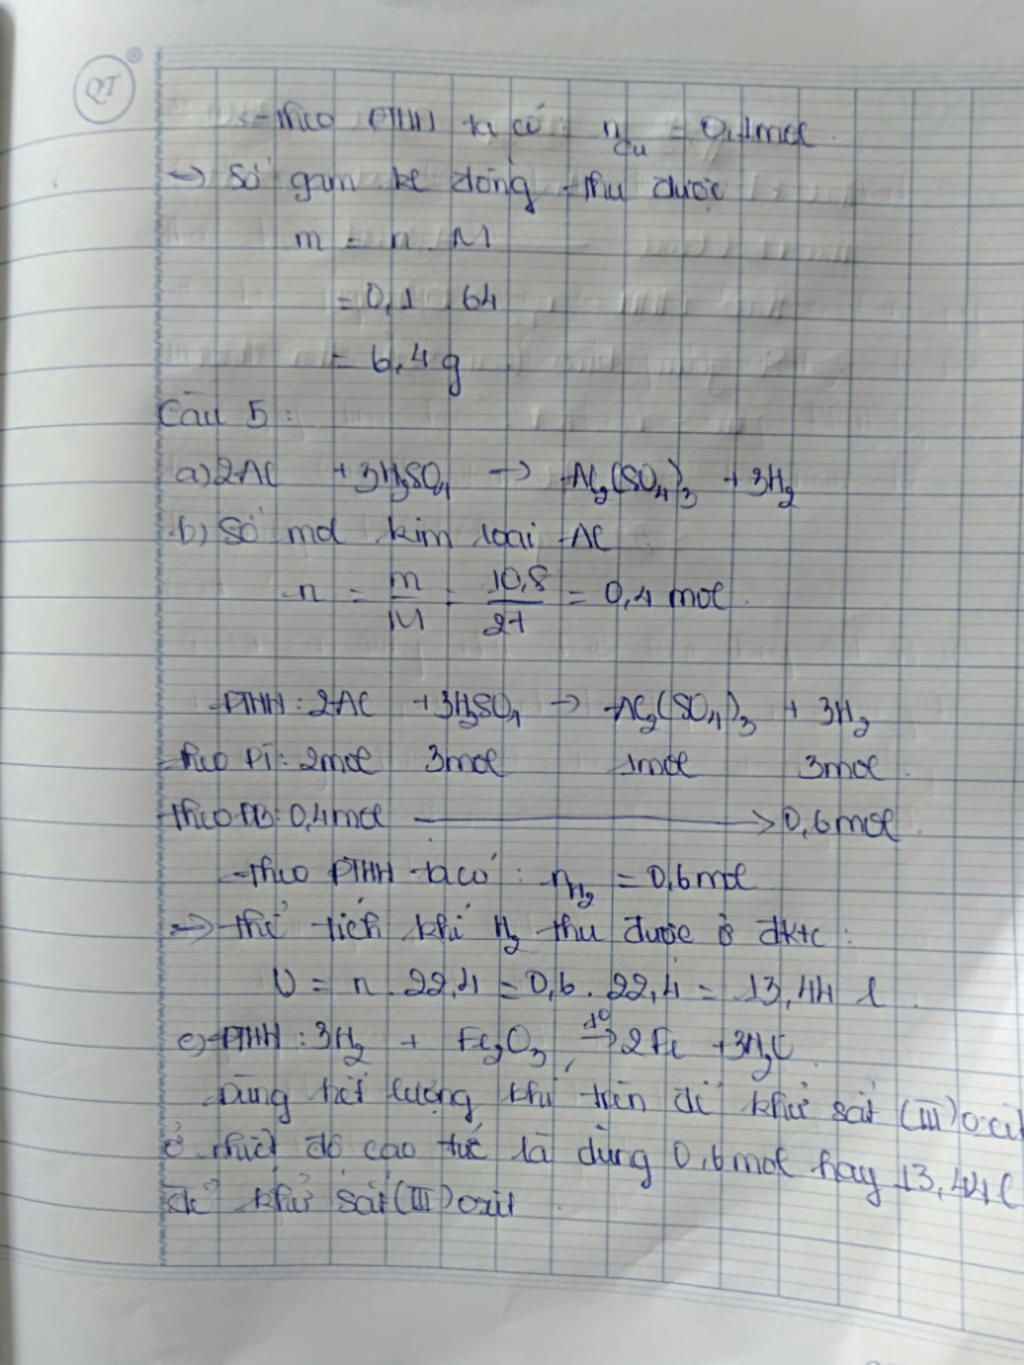 QT
- Theo PTHH ta có n Cu = 0,1mol
→ Số gam kl đồng thu được
m = n . M
= 0,1 . 64
= 6,4 g
Câu 5:
a) 2Al + 3H₂SO₄ → Al₂(SO₄)₃ + 3H₂
b) Số mol kim loại Al
n = m/M = 10,8/27 = 0,4 mol.
PTHH : 2Al + 3H₂SO₄ → Al₂(SO₄)₃ + 3H₂
Theo PT: 2mol 3mol 1mol 3mol.
Theo ĐB: 0,4mol → 0,6mol.
- Theo PTHH ta có : nH₂ = 0,6mol
→ Thể tích khí H₂ thu được ở đktc :
V = n . 22,4 = 0,6 . 22,4 = 13,44 l.
c) PTHH : 3H₂ + Fe₂O₃ t⁰→ 2Fe + 3H₂O
Dùng hết lượng khí trên để khử sắt (III) oxit
ở nhiệt độ cao tức là dùng 0,6mol hay 13,44l
để khử sắt (III) oxit.